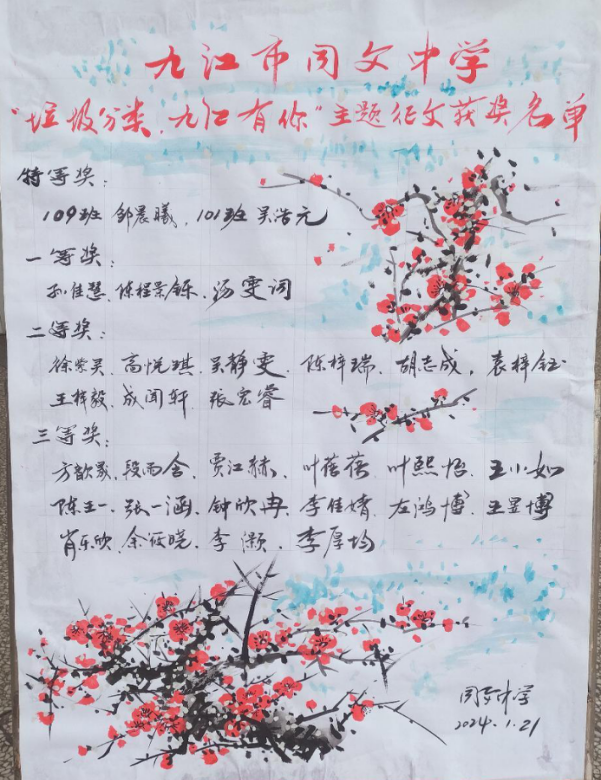 九江市同文中学
“垃圾分类,九江有你”主题征文获奖名单
特等奖:
109班 邹晨曦、101班 吴浩元
一等奖:
孙佳慧、陈程景铄、汤雯词
二等奖:
徐紫昊、高悦琪、吴静雯、陈梓瑞、胡志成,袁梓钰
王梓毅、成闻轩、张宏睿
三等奖:
方歆晟、段雨含、贾江赫、叶蓓蓓、叶熙怡、王小如
陈王一、张一涵、钟欣冉、李佳婧、左鸿博、王昱博
肖乐欣、余筱晓、李灏、李厚均
同文中学
2024.1.21